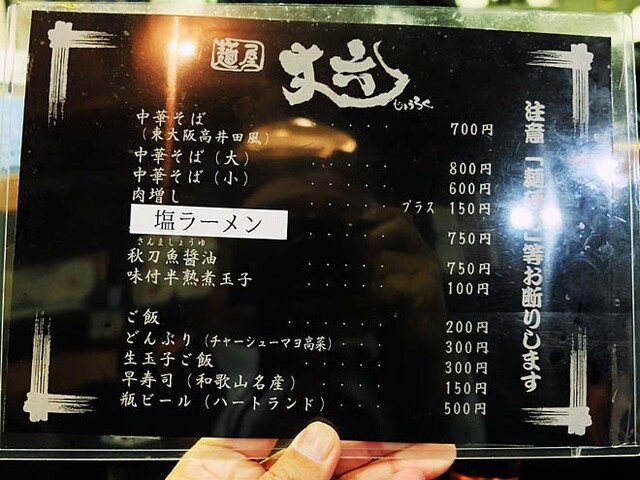 麺屋 丈六
じょうろく
中華そば ・・・・ 700円
(東大阪高井田風)
中華そば(大) ・・・・ 800円
中華そば(小) ・・・・ 600円
肉増し ・・・・ プラス 150円
塩ラーメン ・・・・ 750円
さんましょうゆ
秋刀魚醬油 ・・・・ 750円
味付半熟煮玉子 ・・・・ 100円
ご飯 ・・・・・・ 200円
どんぶり(チャーシューマヨ高菜) ・・・ 300円
生玉子ご飯 ・・・・・ 300円
早寿司(和歌山名産) ・・・・ 150円
瓶ビール(ハートランド) ・・・ 500円
注意「麺 」等お断りします